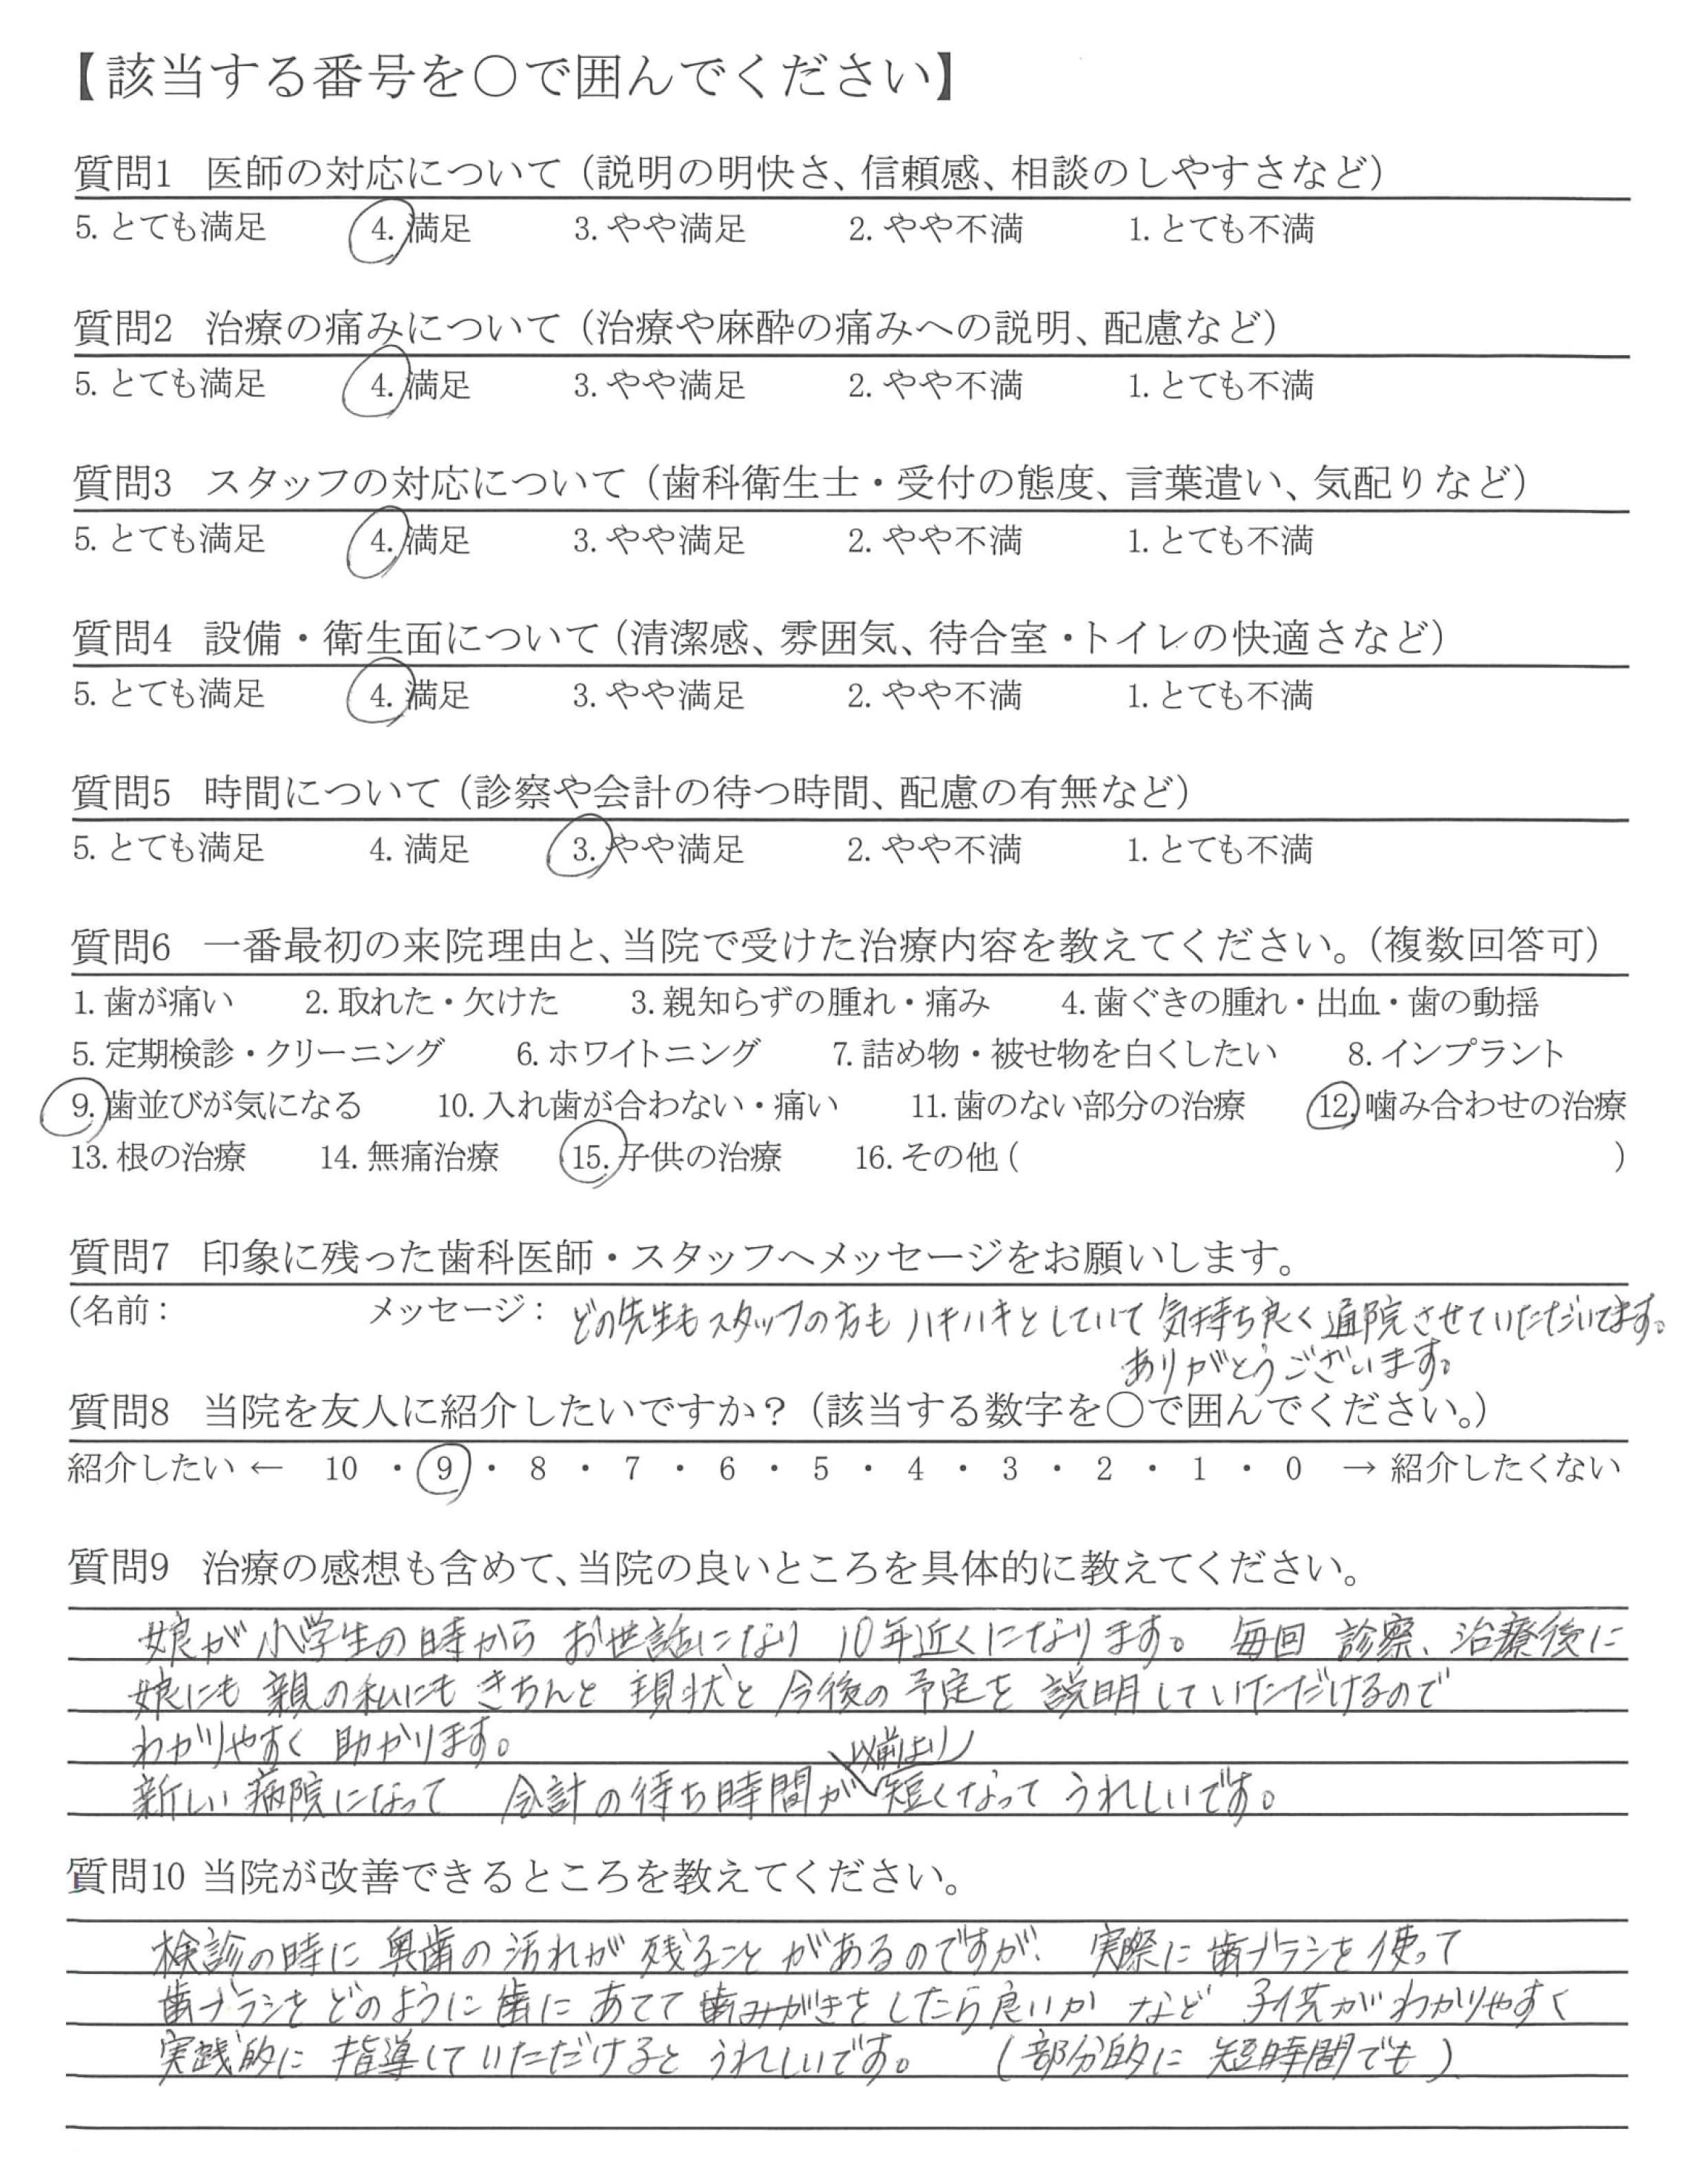 【該当する番号を○で囲んでください】
質問1 医師の対応について（説明の明快さ、信頼感、相談のしやすさなど）
5. とても満足 4. 満足 3. やや満足 2. やや不満 1. とても不満
質問2 治療の痛みについて（治療や麻酔の痛みへの説明、配慮など）
5. とても満足 4. 満足 3. やや満足 2. やや不満 1. とても不満
質問3 スタッフの対応について（歯科衛生士・受付の態度、言葉遣い、気配りなど）
5. とても満足 4. 満足 3. やや満足 2. やや不満 1. とても不満
質問4 設備・衛生面について（清潔感、雰囲気、待合室・トイレの快適さなど）
5. とても満足 4. 満足 3. やや満足 2. やや不満 1. とても不満
質問5 時間について（診察や会計の待つ時間、配慮の有無など）
5. とても満足 4. 満足 3. やや満足 2. やや不満 1. とても不満
質問6 一番最初の来院理由と、当院で受けた治療内容を教えてください。（複数回答可）
1. 歯が痛い 2. 取れた・欠けた 3. 親知らずの腫れ・痛み 4. 歯ぐきの腫れ・出血・歯の動揺
5. 定期検診・クリーニング 6. ホワイトニング 7. 詰め物・被せ物を白くしたい 8. インプラント
9. 歯並びが気になる 10. 入れ歯が合わない・痛い 11. 歯のない部分の治療 12. 噛み合わせの治療
13. 根の治療 14. 無痛治療 15. 子供の治療 16. その他（ ）
質問7 印象に残った歯科医師・スタッフへメッセージをお願いします。
（名前： メッセージ： どの先生もスタッフの方もハキハキとしていて気持ち良く通院させていただいてます。
ありがとうございます。
質問8 当院を友人に紹介したいですか？（該当する数字を○で囲んでください。）
紹介したい ← 10 ・ 9 ・ 8 ・ 7 ・ 6 ・ 5 ・ 4 ・ 3 ・ 2 ・ 1 ・ 0 → 紹介したくない
質問9 治療の感想も含めて、当院の良いところを具体的に教えてください。
娘が小学生の時からお世話になり 10年近くになります。 毎回 診察、治療後に
娘にも親の私にもきちんと現状と今後の予定を説明していただけるので
わかりやすく助かります。
新しい病院になって 会計の待ち時間が以前より短くなってうれしいです。
質問10 当院が改善できるところを教えてください。
検診の時に奥歯の汚れが残ることがあるのですが、実際に歯ブラシを使って
歯ブラシをどのように歯にあてて歯みがきをしたら良いかなど 子供がわかりやすく
実践的に指導していただけるとうれしいです。 （部分的に短時間でも）